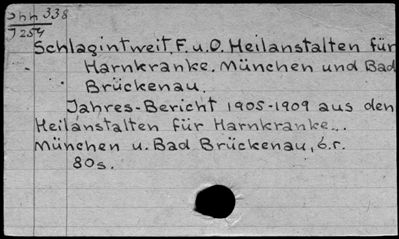 Ohh 338
J 254
Schlagintweit, F. u. O. Heilanstalten für
Harnkranke. München und Bad
Brückenau.
Jahres-Bericht 1905-1909 aus den
Heilanstalten für Harnkranke...
München u. Bad Brückenau, o.r.
80s.